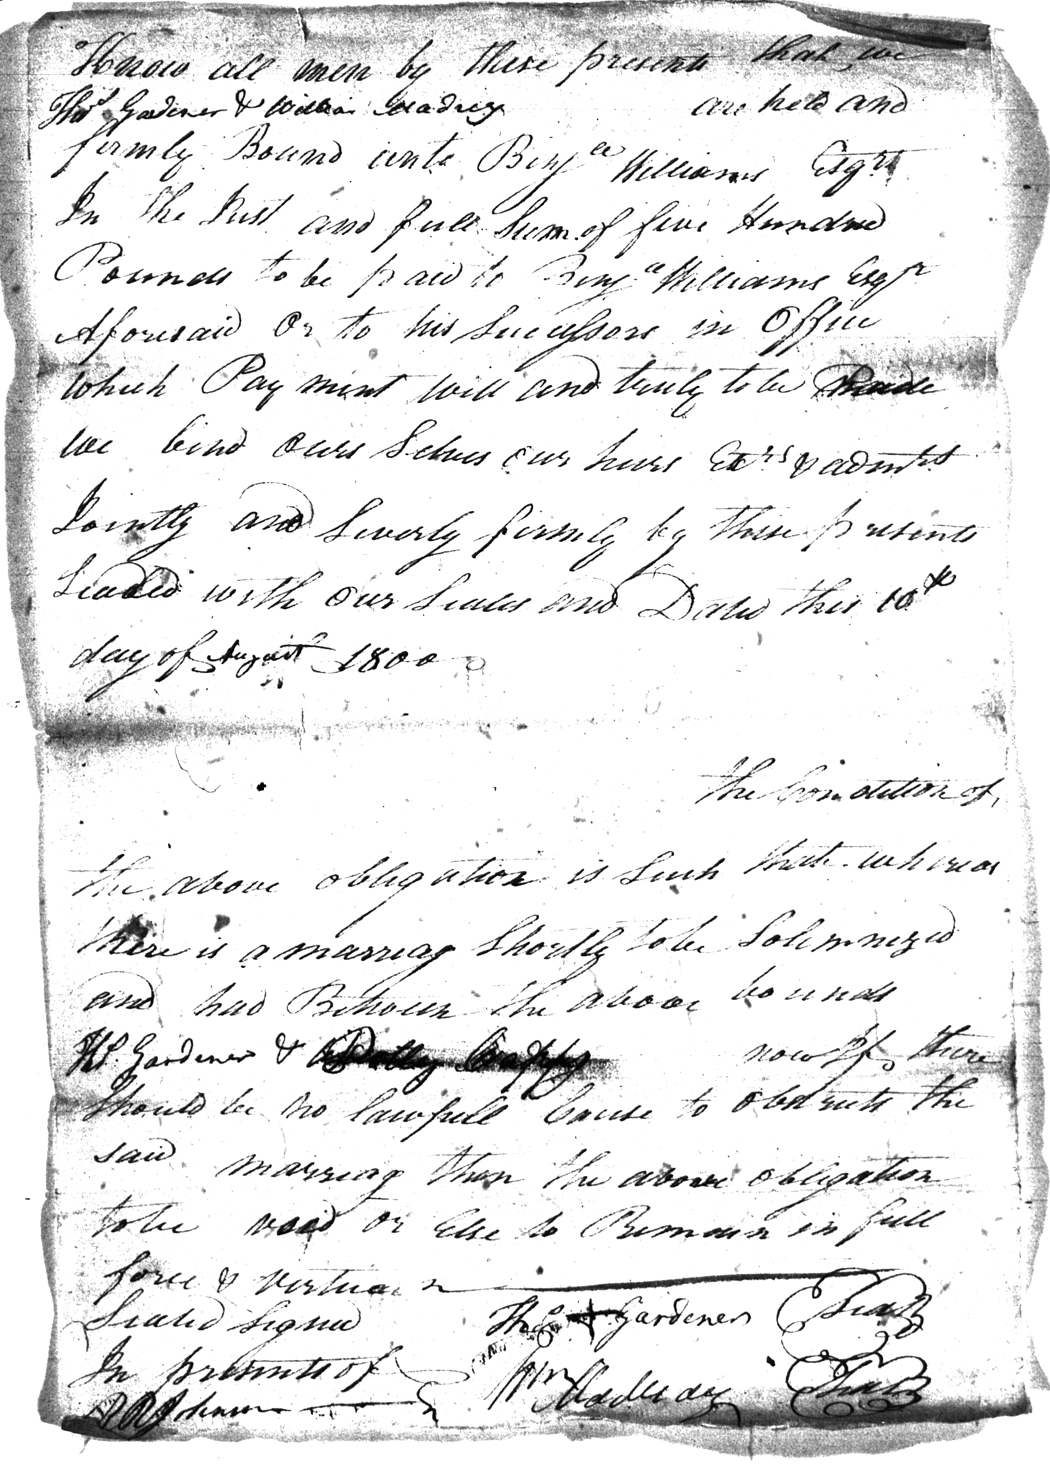 Know all men by these presents that we
Thos. Gardener & William are held and
firmly Bound unto Benja Williams Esqr
In the Just and full Sum of five Hundred
Pounds to be paid to Benja Williams Esqr
Aforesaid Or to his Successors in Office
which Payment will and truly to be made
we bind ours Selves our heirs Exrs & admrs
Jointly and Severly firmly by these presents
Sealed with our Seales and Dated this 10th
day of August 1800
the Condition of
the above obligation is Such that whereas
there is a marreag Shortly to be Solemnezed
and had Between the above bounds
Ths. Gardener & now If there
Should be no lawfull Cause to obstructs the
said marreag then the above obligation
to be void or Else to Remain in full
force & virtue
Sealed Signed Thos + Gardener Seal
In presents of Wm Seal